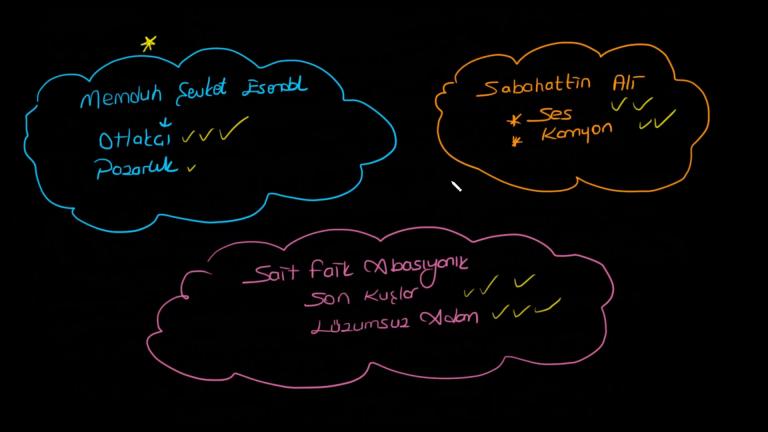 Memduh Şevket Esendal
Otlakçi
Pazarlık
Sabahattin Ali
* Ses
* Kamyon
Sait Faik Abasıyanık
Son Kuşlar
Lüzumsuz Adam